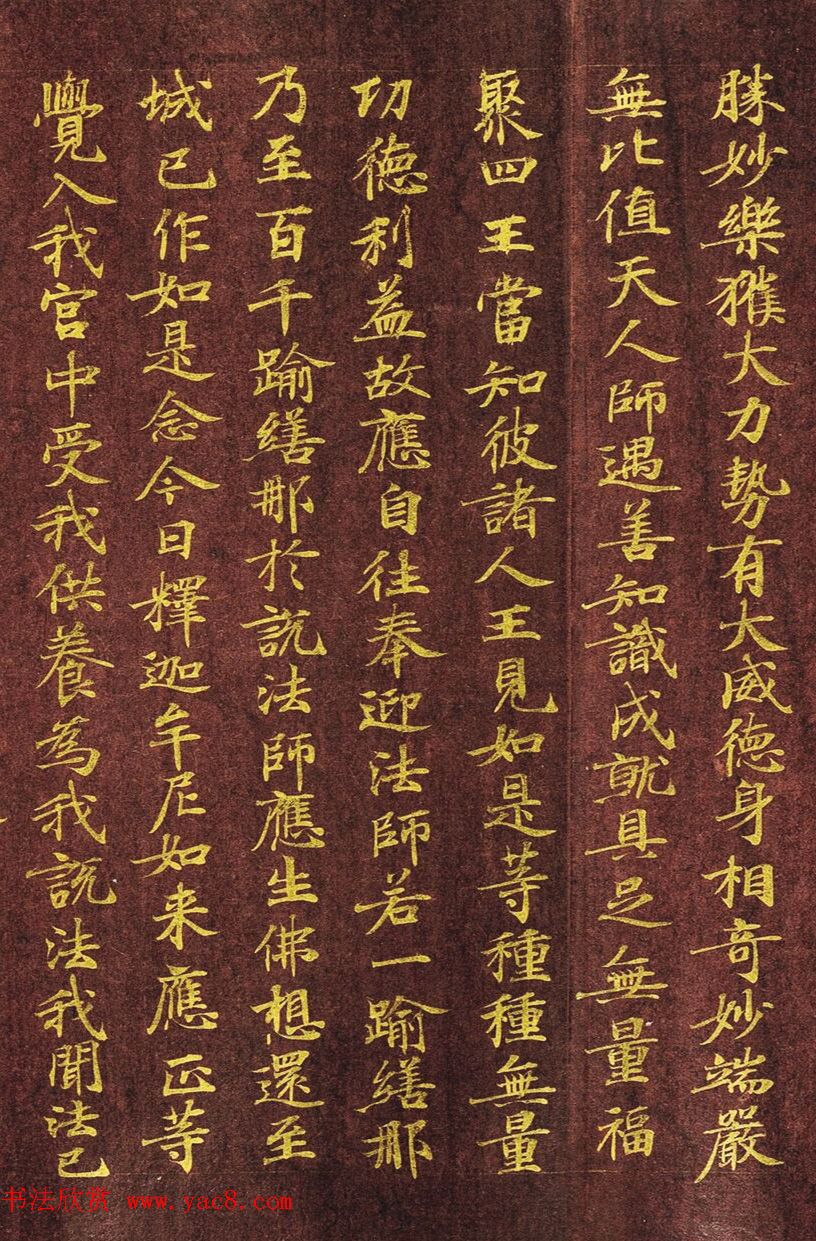 勝妙樂獲大力勢有大威德身相奇妙端嚴
無比值天人師遇善知識成就具足無量福
聚四王當知彼諸人王見如是等種種無量
功德利益故應自往奉迎法師若一踰繕那
乃至百千踰繕那於說法師應生佛想還至
城已作如是念今日釋迦牟尼如来應正等
覺入我宮中受我供養為我說法我聞法已
书法欣赏 www.yac8.com